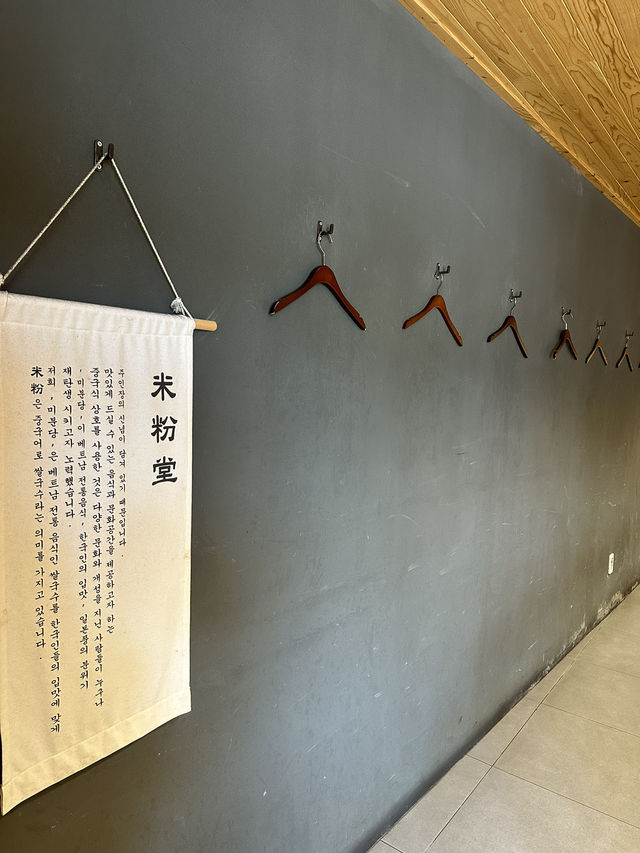 米粉堂
米粉은 중국어로 쌀국수라는 의미를 가지고 있습니다.
저희, 미분당, 은 베트남 전통 음식인 쌀국수를 한국인들의 입맛에 맞게
재탄생 시키고자 노력했습니다.
, 미분당, 이 베트남 전통음식, 한국인의 입맛, 일본풍의 분위기
중국식 상호를 사용한 것은 다양한 문화와 개성을 지닌 사람들이 누구나
맛있게 드실 수 있는 음식과 문화공간을 제공하고자 하는
주인장의 신념이 담겨 있기 때문입니다.